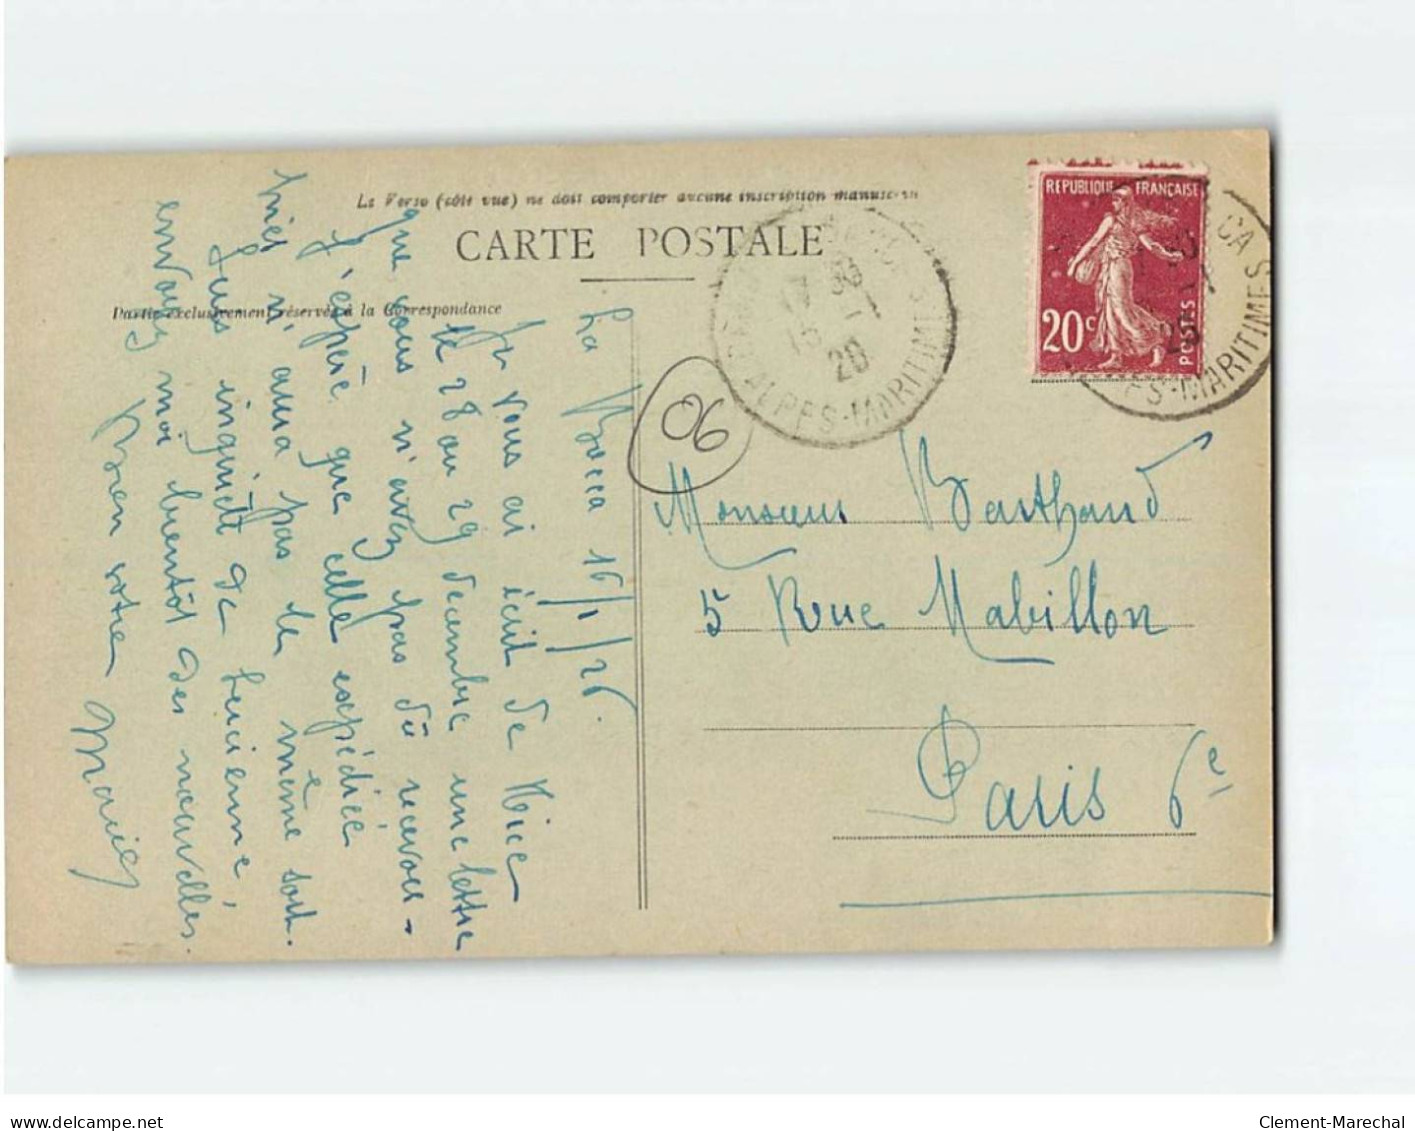 Le Verso (côté vue) ne doit comporter aucune inscription manuscrite
CARTE POSTALE
Partie exclusivement réservée à la Correspondance
La Bocca 16/1/26.
Je vous ai écrit de Nice
le 28 ou 29 décembre une lettre
que vous n'avez pas dû recevoir -
J'espère que celle expédiée
hier n'aura pas le même sort.
Suis inquiet de Lucienne,
envoyez moi bientôt des nouvelles.
Bien votre
06
RÉPUBLIQUE FRANÇAISE
20c
POSTES
CA
ES-MARITIMES
17 30
-1
ALPES-MARITIMES
Monsieur Barthaud
5 Rue Mabillon
Paris 6e
Clement-Marechal